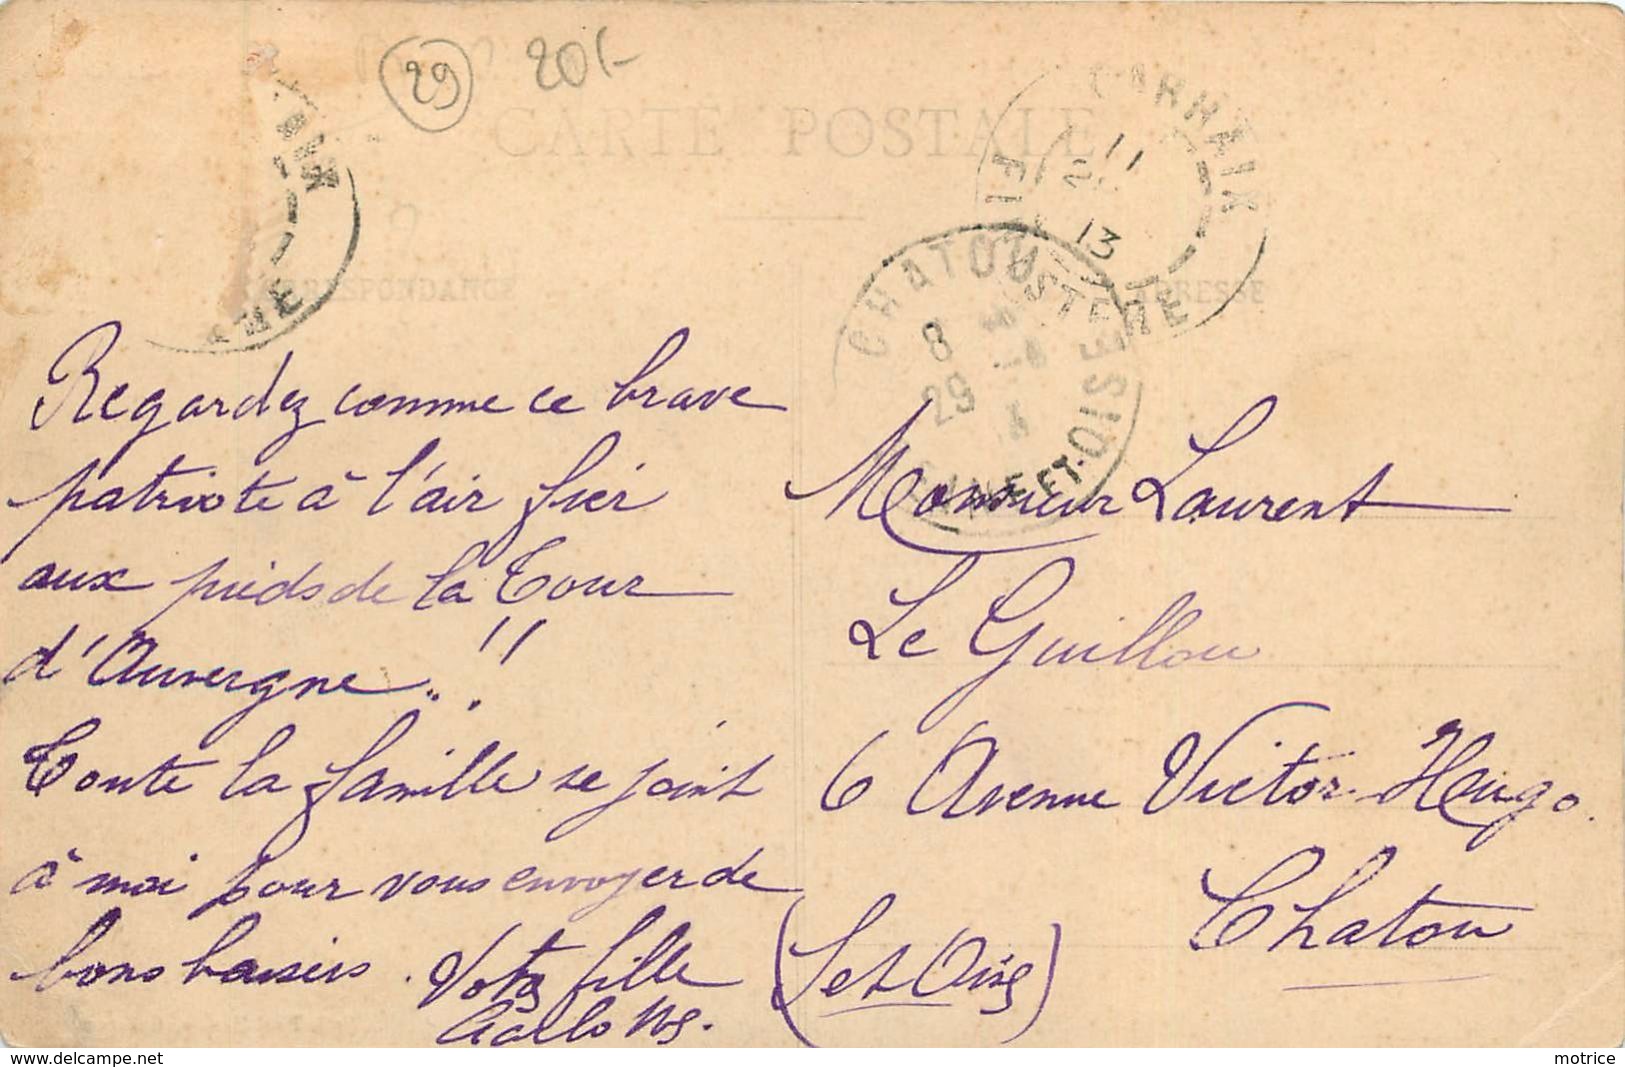 29
20/-
CARTE POSTALE
CORRESPONDANCE
ADRESSE
CARHAIX
FINISTERE
11
13
CHATOU
8
29
SEINE-ET-OISE
Regardez comme ce brave
patriote à l'air fier
aux pieds de la Tour
d'Auvergne..!!
Toute la famille se joint
à moi pour vous envoyer de
bons baisers. Votre fille
Carlotta.
Monsieur Laurent
Le Guillou
6 Avenue Victor-Hugo.
Chatou
(S et Oise)
delcampe.net
motrice